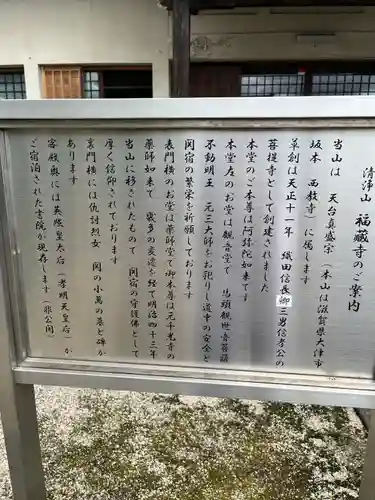 清浄山 福蔵寺のご案内
当山は 天台真盛宗（本山は滋賀県大津市
坂本 西教寺）に属します
草創は天正十一年 織田信長卿三男信孝公の
菩提寺として創建されました
本堂のご本尊は阿弥陀如来です
本堂左のお堂は観音堂で 馬頭観世音菩薩
不動明王 元三大師をお祀りし道中の安全と
関宿の繁栄を祈願しております
表門横のお堂は薬師堂で御本尊は元千光寺の
薬師如来で 幾多の変遷を経て明治四十三年
当山に移されたもので 関宿の守護佛として
厚く信仰されております
裏門横には仇討烈女 関の小萬の墓と碑が
あります
客殿奥には英照皇太后（孝明天皇后）が
ご宿泊された書院が現存します（非公開）